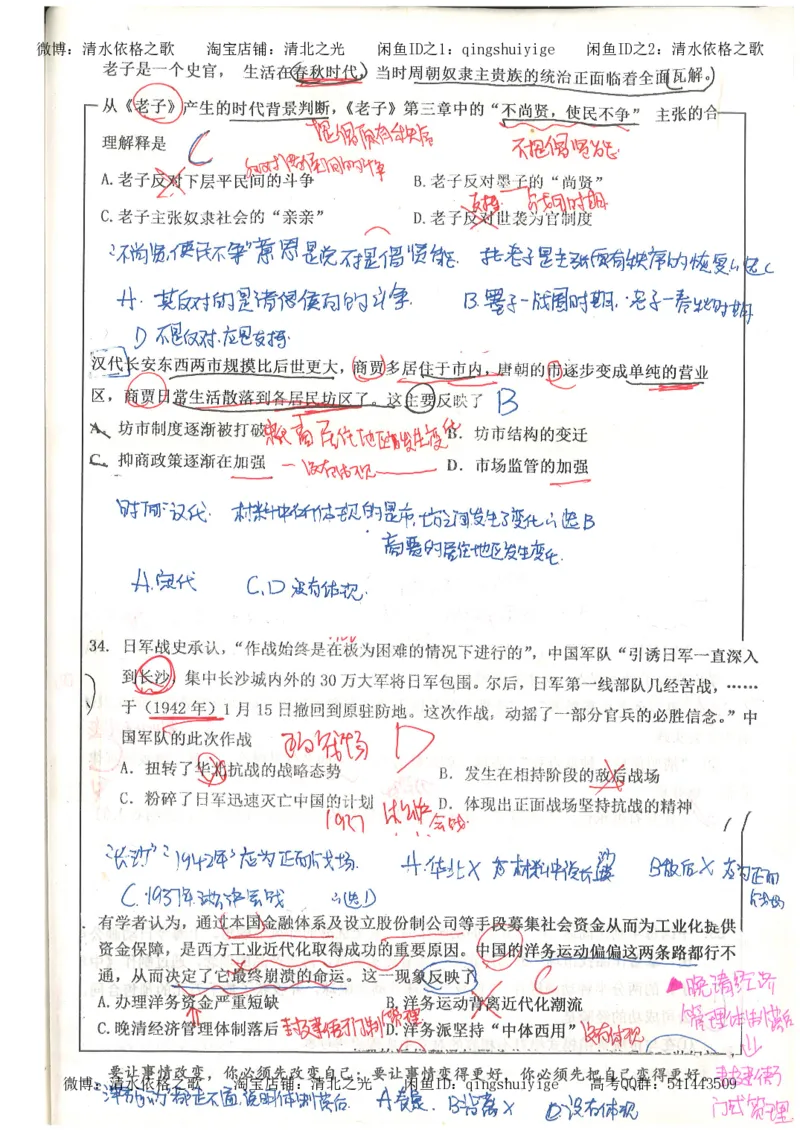 微博：清水依格之歌 淘宝店铺：清北之光 闲鱼ID之1：qingshuiyige 闲鱼ID之2：清水依格之歌
老子是一个史官， 生活在春秋时代，当时周朝奴隶主贵族的统治正面临着全面瓦解。
从《老子》产生的时代背景判断，《老子》第三章中的“不尚贤，使民不争” 主张的合
理解释是 C
不提倡贤能
A.老子反对下层平民间的斗争 B.老子反对墨子的“尚贤”
支持
C.老子主张奴隶社会的“亲亲” D.老子反对世袭为官制度
“不尚贤，使民不争”意思是说不提倡贤能.
A. 其反对的是诸侯间的斗争. B.墨子—战国时期.老子—春秋时期
D 不是反对.应是支持
汉代长安东西两市规摸比后世更大，商贾多居住于市内，唐朝的市逐步变成单纯的营业
区，商贾日常生活散落到各居民坊区了。这主要反映了 B
A. 坊市制度逐渐被打破 B. 坊市结构的变迁
C. 抑商政策逐渐在加强 — 没有体现 D. 市场监管的加强
时间：汉代. 材料中所体现的是市,坊之间发生了变化∴选B
商贾的居住地区发生变化.
A.宋代 C,D没有体现.
34. 日军战史承认，“作战始终是在极为困难的情况下进行的”，中国军队“引诱日军一直深入
到长沙，集中长沙城内外的 30 万大军将日军包围。尔后，日军第一线部队几经苦战，……
于（1942 年）1 月 15 日撤回到原驻防地。这次作战，动摇了一部分官兵的必胜信念。”中
国军队的此次作战 正面战场 D
A. 扭转了华北抗战的战略态势 B. 发生在相持阶段的敌后战场
C. 粉碎了日军迅速灭亡中国的计划 D. 体现出正面战场坚持抗战的精神
1937 会战
“长沙”“1942年”应为正面战场. A.华北X B敌后X 应为正面
战场
C.1937年 会战 ∴选D
有学者认为，通过本国金融体系及设立股份制公司等手段募集社会资金从而为工业化提供
资金保障，是西方工业近代化取得成功的重要原因。中国的洋务运动偏偏这两条路都行不
通，从而决定了它最终崩溃的命运。这一现象反映了 C
晚清经济
A.办理洋务资金严重短缺 B.洋务运动背离近代化潮流
管理体制落后
C.晚清经济管理体制落后 D.洋务派坚持“中体西用” 没有体现
封建衙门式管理
要让事情改变，你必须先改变自己；要让事情变得更好，你必须先把自己变得更好。
微博：清水依格之歌 淘宝店铺：清北之光 闲鱼ID：qingshuiyige 高考QQ群：541443509
B背离X D没有体现